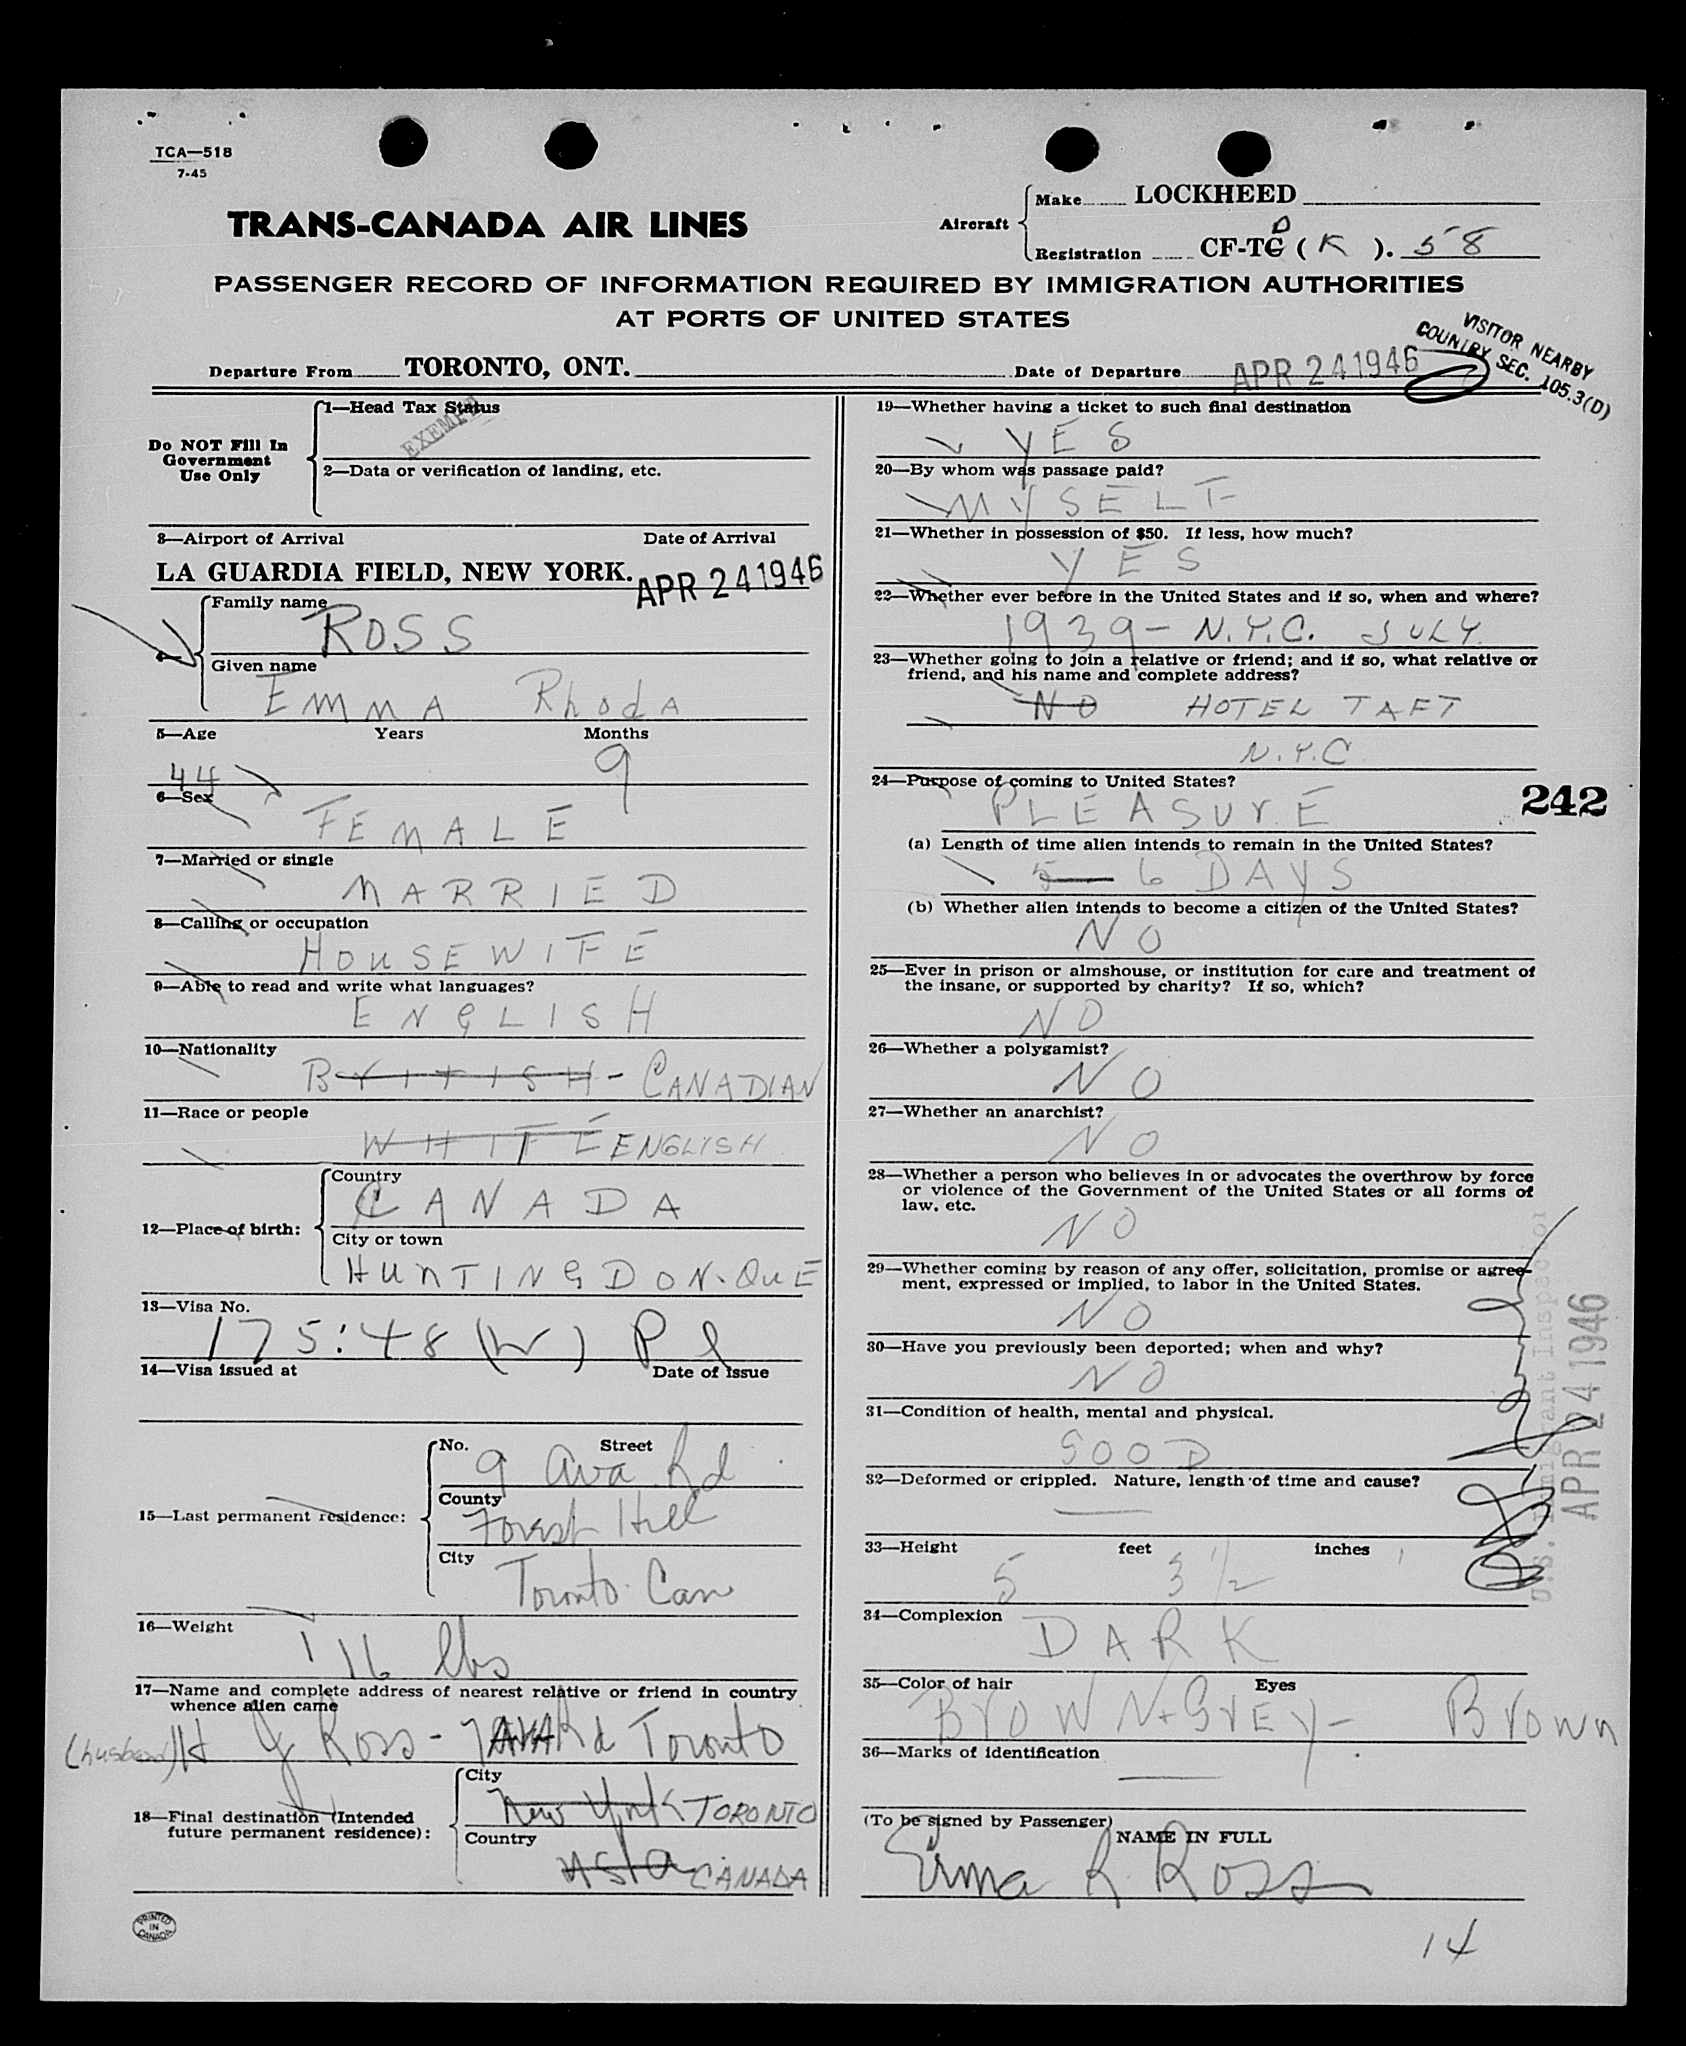 TCA—518
7-45
TRANS-CANADA AIR LINES
Aircraft
Make LOCKHEED
Registration CF-TG D ( K ). 58
PASSENGER RECORD OF INFORMATION REQUIRED BY IMMIGRATION AUTHORITIES
AT PORTS OF UNITED STATES
VISITOR NEARBY
COUNTRY SEC. 105.3(D)
Departure From TORONTO, ONT. Date of Departure APR 24 1946
Do NOT Fill In
Government
Use Only
1—Head Tax Status
EXEMPT
2—Data or verification of landing, etc.
3—Airport of Arrival Date of Arrival
LA GUARDIA FIELD, NEW YORK. APR 24 1946
4—
Family name
ROSS
Given name
EMMA RhodA
5—Age Years Months
44 9
6—Sex
FEMALE
7—Married or single
MARRIED
8—Calling or occupation
HOUSEWIFE
9—Able to read and write what languages?
ENGLISH
10—Nationality
BrITISH - CANADIAN
11—Race or people
WHITE ENGLISH
12—Place of birth:
Country
CANADA
City or town
HUNTINGDON. QUE
13—Visa No.
175:48 (W) Pl
14—Visa issued at Date of Issue
15—Last permanent residence:
No. Street
9 Ava Rd
County
Forest Hill
City
Toronto Can
16—Weight
116 lbs
17—Name and complete address of nearest relative or friend in country
whence alien came
(husband) Ross - AVA Rd Toronto
18—Final destination (Intended
future permanent residence):
City
New York TORONTO
Country
USA CANADA
PRINTED
IN
CANADA
19—Whether having a ticket to such final destination
YES
20—By whom was passage paid?
MYSELF
21—Whether in possession of $50. If less, how much?
YES
22—Whether ever before in the United States and if so, when and where?
1939 - N.Y.C. JULY
23—Whether going to join a relative or friend; and if so, what relative or
friend, and his name and complete address?
NO HOTEL TAFT
N.Y.C
24—Purpose of coming to United States?
PLEASUrE
242
(a) Length of time alien intends to remain in the United States?
5— 6 DAYS
(b) Whether alien intends to become a citizen of the United States?
NO
25—Ever in prison or almshouse, or institution for care and treatment of
the insane, or supported by charity? If so, which?
NO
26—Whether a polygamist?
NO
27—Whether an anarchist?
NO
28—Whether a person who believes in or advocates the overthrow by force
or violence of the Government of the United States or all forms of
law, etc.
NO
29—Whether coming by reason of any offer, solicitation, promise or agree-
ment, expressed or implied, to labor in the United States.
NO
30—Have you previously been deported; when and why?
NO
31—Condition of health, mental and physical.
GOOD
32—Deformed or crippled. Nature, length of time and cause?
—
33—Height feet inches
5 3 1/2
34—Complexion
DARK
35—Color of hair Eyes
BrOWN + GrEY - Brown
36—Marks of identification
—
U.S. Immigrant Inspector
APR 24 1946
(To be signed by Passenger)
NAME IN FULL
Emma R. Ross
14